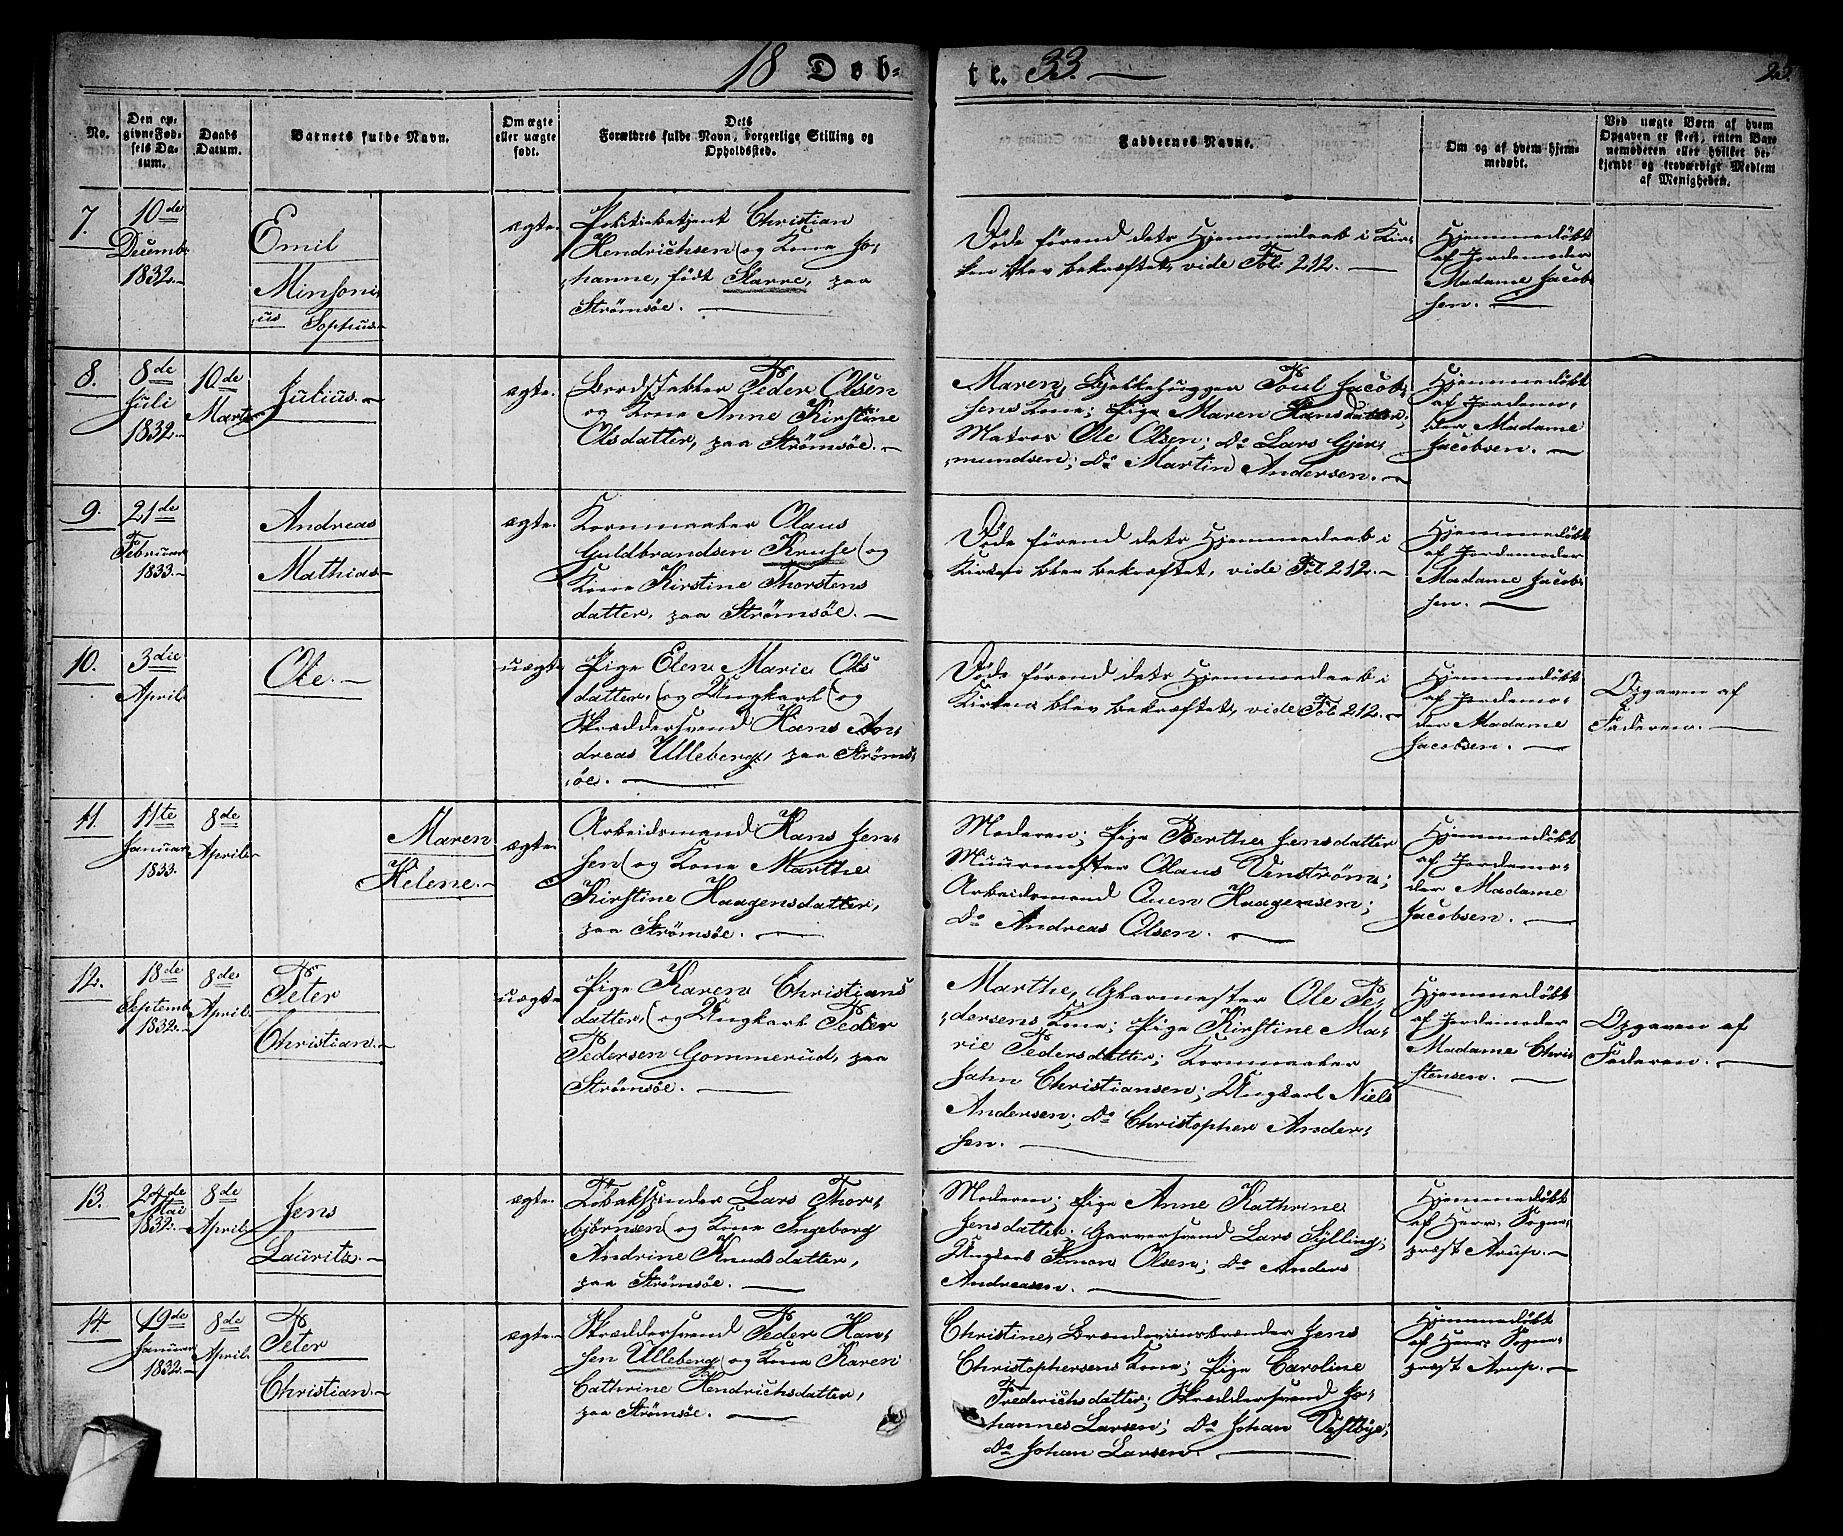 18 Døb-
te. 33.
No.
Den op-
givne Fød-
sels Da-
tum.
Daabs
Datum.
Barnets fulde Navn.
Om ægte
eller uægte
født.
Dets
Forældres fulde Navn, borgerlige Stilling og
Opholdssted.
Faddernes Navne.
Om og af hvem hjem-
medøbt.
Ved uægte Børn af hvem
Opgaven er skeet, enten Bar-
nemoderen eller hvilket be-
kjendt og troværdigt Medlem
af Menigheden.
7.
10de
Decemb.
1832.
Emil
Minsoni-
us Sophus.
ægte.
Politiebetjent Christian
Hendrichsen (og Kone Jo-
hanne, født Starre, paa
Strømsøe.
Døde førend dets Hjemmedaab i Kir-
ken blev bekræftet, vide Fol: 212.
Hjemmedøbt
af Jordemoder
Madame Jacob-
sen.
8.
8de
Juli
1832.
10de
Marts
Julius.
ægte.
Bordstabler Peder Olsen
og Kone Anne Kirstine
Olsdatter, paa Strømsøe.
Maren, Bjelkehugger Poul Jacob-
sens Kone; Pige Maren Hansdatter;
Matros Ole Olsen; Do Lars Gjer-
mundsen; Do Martin Andersen.
Hjemmedøbt
af Jordemo-
der Madame
Jacobsen.
9.
21de
Februar
1833.
Andreas
Mathias
ægte.
Kornmaaler Olaus
Guldbrandsen Kruse (og
Kone Kirstine Thorstens
datter, paa Strømsøe.
Døde førend dets Hjemmedaab i
Kirken blev bekræftet, vide Fol 212.
Hjemmedøbt
af Jordemoder
Madame Jacob-
sen.
10.
3die
April
Ole.
uægte
Pige Elen Marie Ols
datter, (og Ungkarl (og
Skræddersvend Hans An-
dreas Ulleberg, paa Strøms-
øe.
Døde førend dets Hjemmedaab i
Kirken blev bekræftet, vide Fol 212.
Hjemmedøbt
af Jordemo-
der Madame
Jacobsen.
Opgaven af
Faderen.
11.
11te
Januar
1833.
8de
April
Maren
Helene.
ægte
Arbeidsmand Hans Jen-
sen (og Kone Marthe
Kirstine Haagensdatter,
paa Strømsøe.
Moderen; Pige Berthe Jensdatter
Muurmester Olaus Venstrøm;
Arbeidsmand Ouen Haagensen;
Do Andreas Olsen.
Hjemmedøbt
af Jordemo-
der Madame
Jacobsen.
12.
18de
Septemb.
1832.
8de
April
Peter
Christian.
uægte
Pige Karen Christians
datter, (og Ungkarl Peder
Pedersen Gommerud, paa
Strømsøe.
Marthe, Skarmester Ole Pe-
dersens Kone; Pige Kirstine Ma-
rie Pedersdatter; Kornmaaler
John Christiansen; Ungkarl Niels
Andersen; Do Christopher Ander-
sen.
Hjemmedøbt
af Jordemoder
Madame Chris-
stensen.
Opgaven af
Faderen.
13.
24de
Mai
1832.
8de
April
Jens
Lauritz.
ægte.
Tobakspinder Lars Thor-
bjørnsen (og Kone Ingeborg
Andrine Knudsdatter,
paa Strømsøe.
Moderen; Pige Anne Kathrine
Jensdatter; Garversvend Lars Sylling;
Ungkarl Simon Olsen; Do Anders
Andreasen.
Hjemmedøbt
af Herr: Sogne-
præst Arup.
14.
19de
Januar
1832.
8de
April
Peter
Christian.
ægte
Skræddersvend Peder Han-
sen Ulleberg (og Kone Karen
Cathrine Hendrichsdatter,
paa Strømsøe.
Christine, Brændeviinsbrænder Jens
Christophersens Kone; Pige Caroline
Frederichsdatter; Skræddersvend Jo-
hannes Larsen; Do Johan Vestbye;
Do Johan Larsen.
Hjemmedøbt
af Herr: Sogne-
præst Arup.